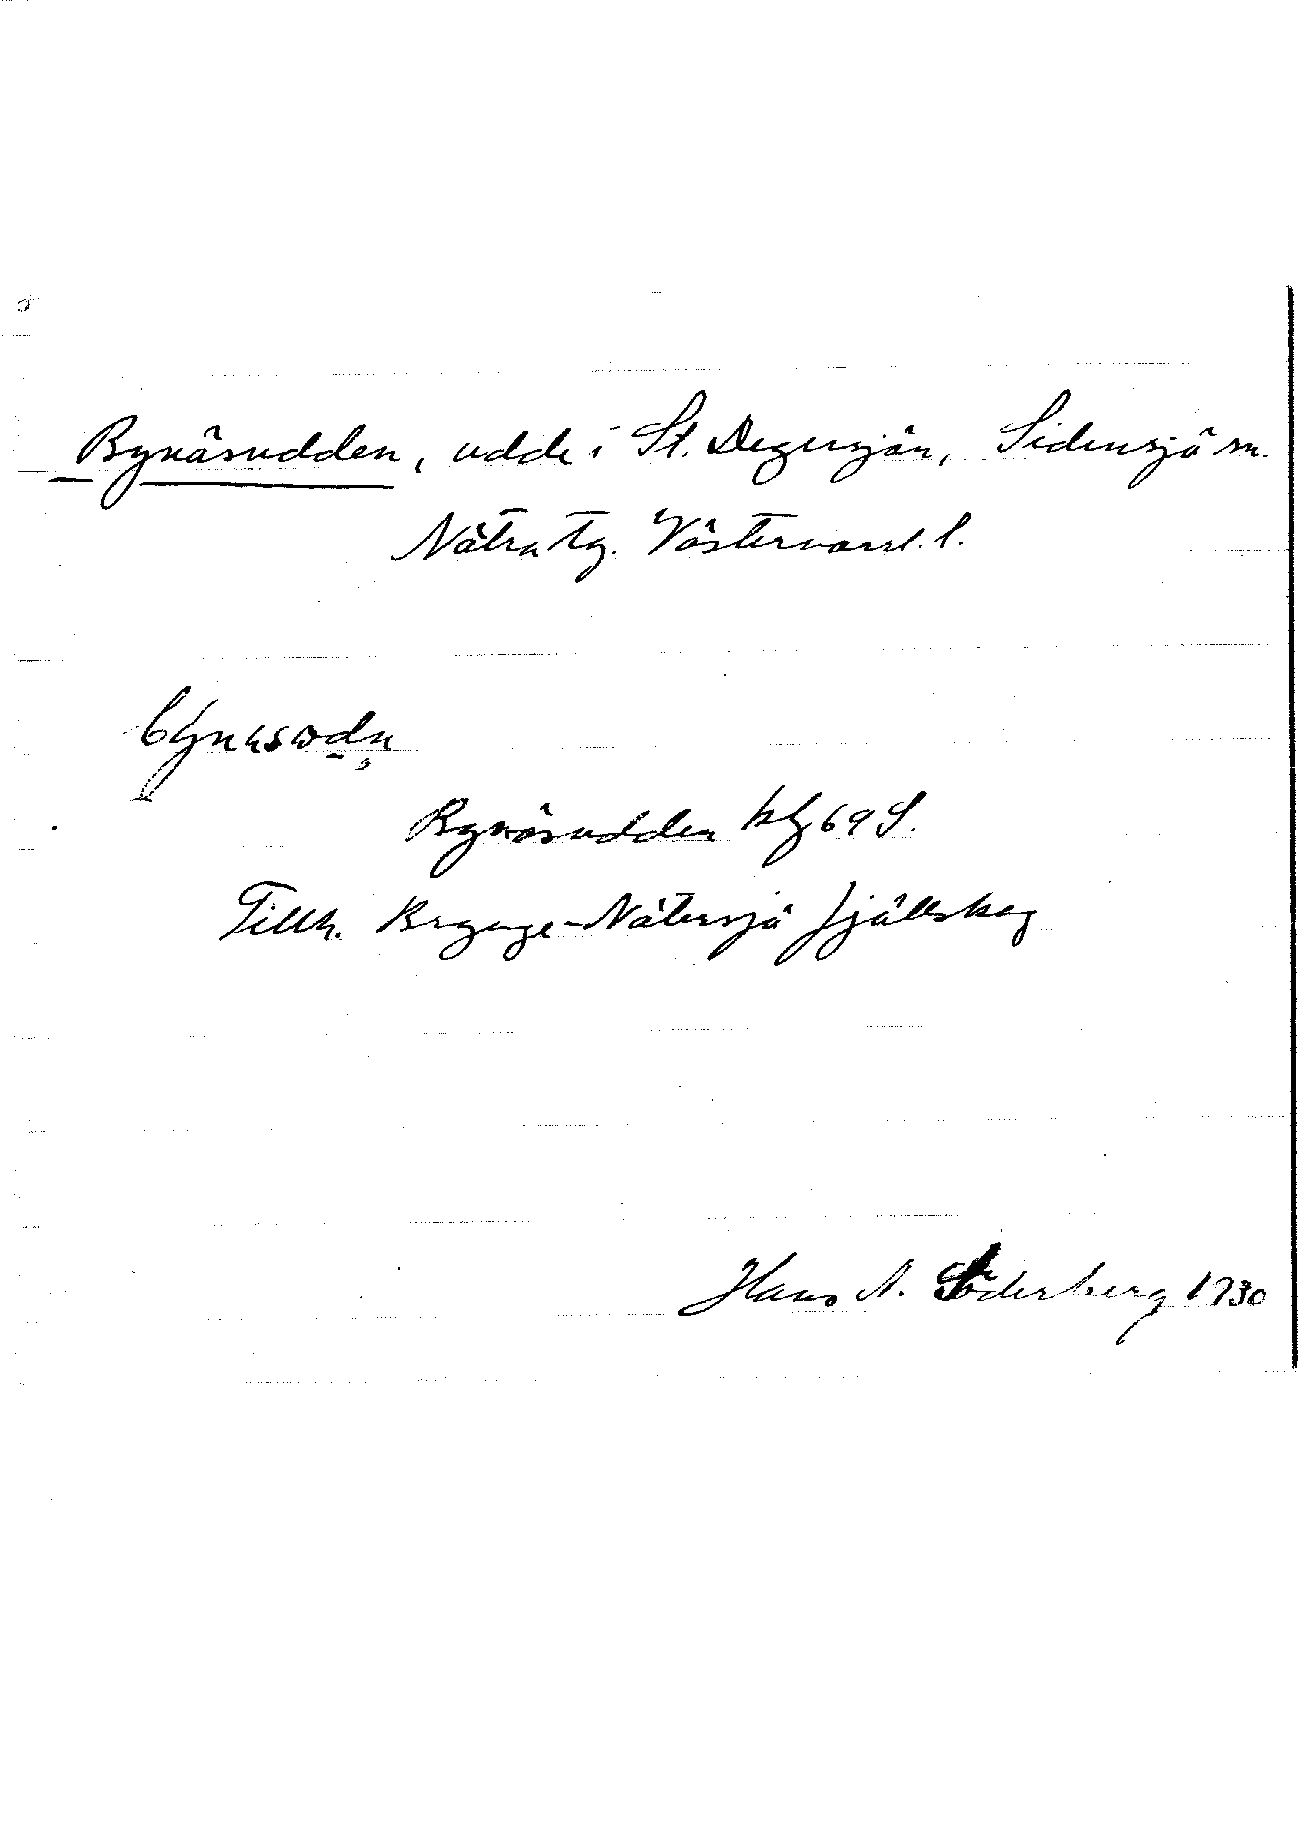 Bynäsudden, udde i St. Degersjön, Sidensjö sn.
Nätra tg. Västernorrl. l.
Bynäsudden kbl 69 S.
Tillh. Brynge-Nätersjö fjällskog
Hans A. Söderberg 1930